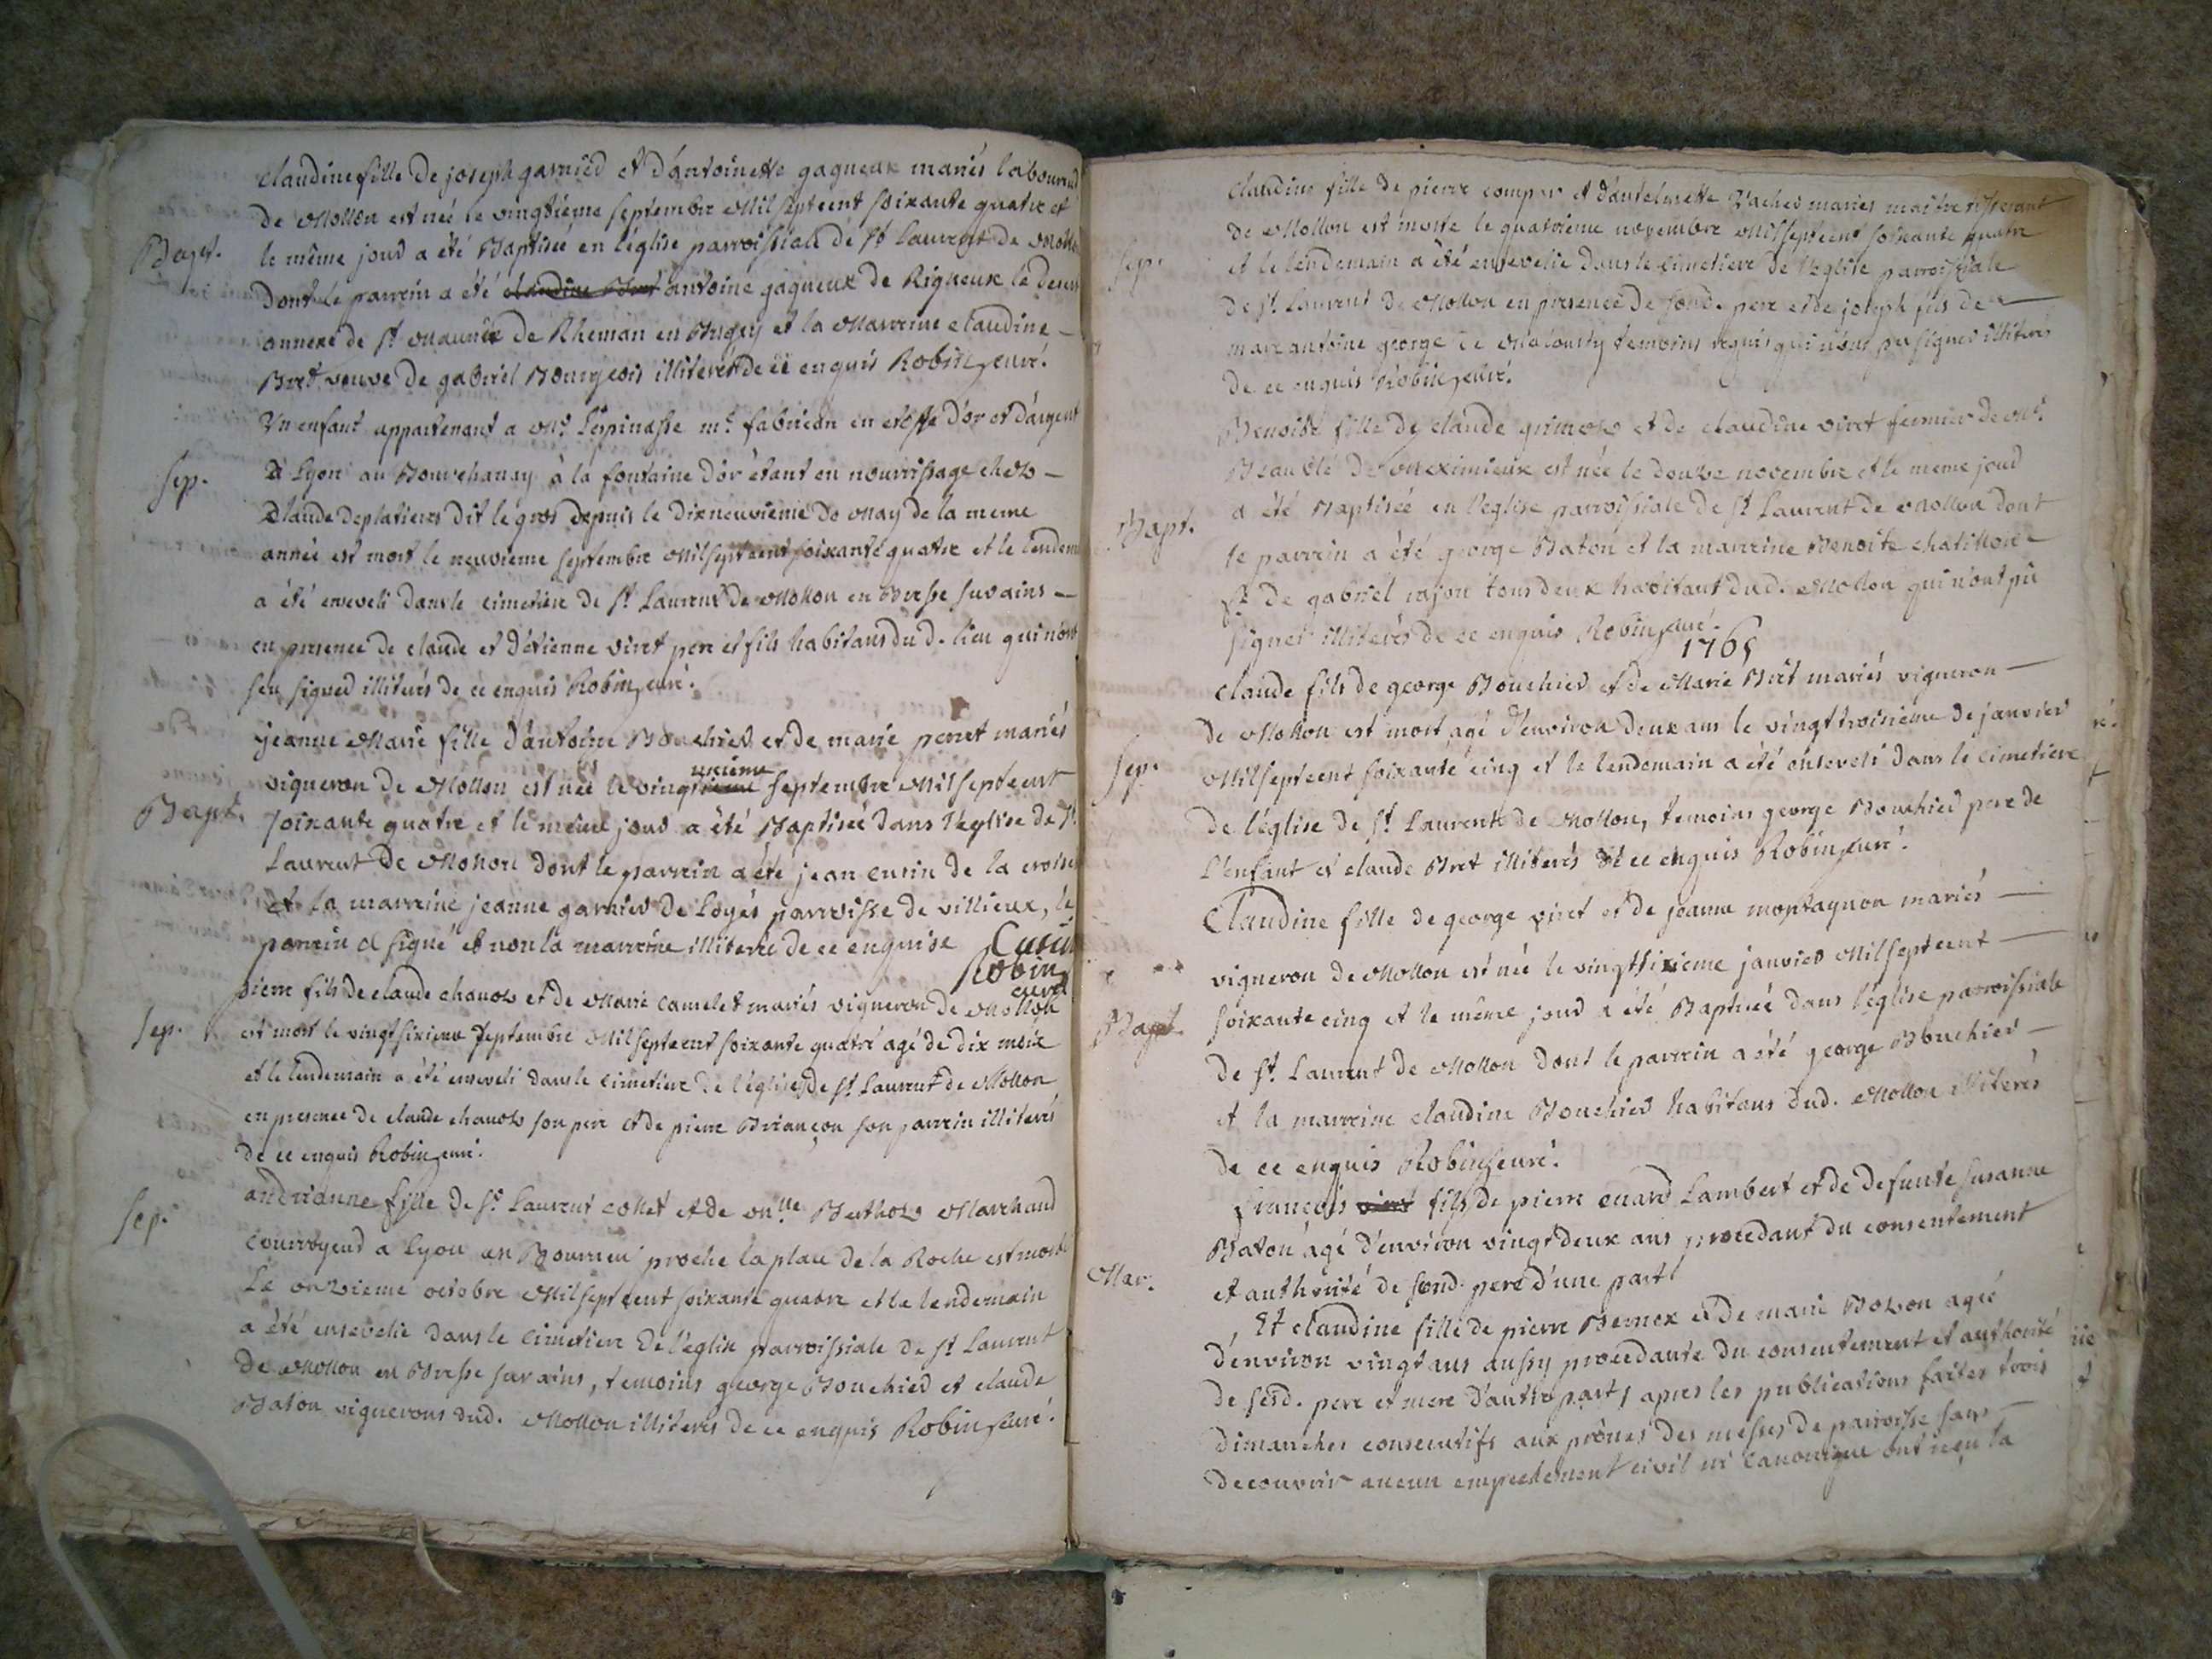 claudine fille de joseph garnied et d'antoinette gagneux mariés laboureud
de Mollon est née le vingtieme septembre Milseptcent soixante quatre et
Bapt. le même joud a été Baptisée en l'église parroissiale de St Laurent de Mollon
dont le parrein a été claudine Bret antoine gagneux de Rigneux le desert
annexe de St Maurice de Rheman en Bugey et la Marreine claudine
Bret veuve de gabriel Bourgeois illiterés de ce enquis Robin, curé.
Un enfant appartenant a Mr. L'espinasse md. fabrican en etoffe d'or et d'argent
Sep. à Lyon au Bourchanay à la fontaine d'or étant en nourrissage chez
Claude deplatieres dit le gros depuis le dixneuvieme de may de la meme
année est mort le neuvieme septembre Milseptcent soixante quatre et le lendem
a été enseveli dans le cimetiere de St Laurent de Mollon en Bresse sur ains
en presence de claude et d'étienne viret pere et fils habitans dud. lieu qui n'ont
seu signed illiterés de ce enquis Robin, curé.
jeanne Marie fille d'antoine Bouchied et de marie perret mariés
unieme
vigneron de Mollon est née le vingtieme septembre Milseptcent
Bapt. soixante quatre et le même joud a été Baptisée dans l'église de St
Laurent de Mollon dont le parrein a été jean cusin de la croise
et la marreine jeanne garnied de Loyes parroisse de villieux, le
parrein a signé et non la marreine illiterée de ce enquise Cusin
Robin
curé
pierre fils de claude chanoz et de Marie camelet mariés vigneron de Mollon
Sep. est mort le vingtsixieme septembre Milseptcent soixante quatre agé de dix mois
et le lendemain a été enseveli dans le cimetiere de l'église de St Laurent de Mollon
en presence de claude chanoz son pere et de pierre Briançon son parrein illiterés
de ce enquis Robin, curé.
andrianne fille de Sr. Laurent collet et de Mlle Berthoz Marchand
Sep. courroyeud a Lyon en Bourneu proche la place de la Roche est morte
Le onzieme octobre Milseptcent soixante quatre et le lendemain
a été ensevelie dans le cimetiere de l'église parroissiale de St Laurent
de Mollon en Bresse sur ains, temoins george Bouchied et claude
Baton vignerons dud. Mollon illiterés de ce enquis Robin, curé.
Claudine fille de pierre compar et d'antelmette Vached mariés maitre tisserant
de Mollon est morte le quatrieme novembre Milseptcent soixante quatre
Sep. et le lendemain a été ensevelie dans le cimetiere de l'église parroissiale
de St. Laurent de Mollon en presence de sond. pere et de joseph fils de
marc antoine george de temoins requis qui n'ont pu signed illiterés
de ce enquis Robin, curé.
Benoite fille de claude et de claudine viret fermier de Mr.
de Meximieux est née le douze novembre et le meme joud
Bapt. a été Baptisée en l'église parroissiale de St Laurent de Mollon dont
le parrein a été george Baton et la marreine Benoite chatillon
fe. de gabriel tous deux habitant dud. Mollon qui n'ont pû
signer illiterés de ce enquis Robin, curé.
1765
claude fils de george Bouchied et de Marie Bret mariés vigneron
de Mollon est mort agé d'environ deux ans le vingttroisieme de janvied
Sep. Milseptcent soixante cinq et le lendemain a été enseveli dans le cimetiere
de l'église de St. Laurent de Mollon, temoins george Bouchied pere de
l'enfant et claude Bret illiterés de ce enquis Robin, curé.
Claudine fille de george viret et de jeanne montagnon mariés
vigneron de Mollon est née le vingtsixieme janvied Milseptcent
Bapt. soixante cinq et le même joud a été Baptisée dans l'église parroissiale
de St. Laurent de Mollon dont le parrein a été george Bouchied
et la marreine claudine Bouchied habitans dud. Mollon illiterés
de ce enquis Robin, curé.
françois viret fils de pierre Lambert et de defunte susanne
Baton agé d'environ vingt deux ans procedant du consentement
Mar. et authorité de sond. pere d'une part
Et claudine fille de pierre Bernex et de marie Bozon agée
d'environ vingt ans aussy procedante du consentement et authorité
de sesd. pere et mere d'autre part, apres les publications faites trois
dimanches consecutifs aux prônes des messes de parroisse sans
decouvrir aucun empechement civil ni canonique ont reçu la